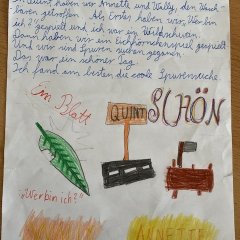 haben wir Annette und Wally, den Wasch-
bären getroffen. Als Erstes haben wir „Wer bin
ich?“ gespielt und ich war ein Wildschwein.
Dann haben wir ein Eichhörnchenspiel gespielt
Und wir sind Spuren suchen gegangen.
Das war ein schöner Tag.
Ich fand am besten die coole Spurensuche.
Ein Blatt
QUINT
SCHÖN
„Wer bin ich?“
ANNETTE